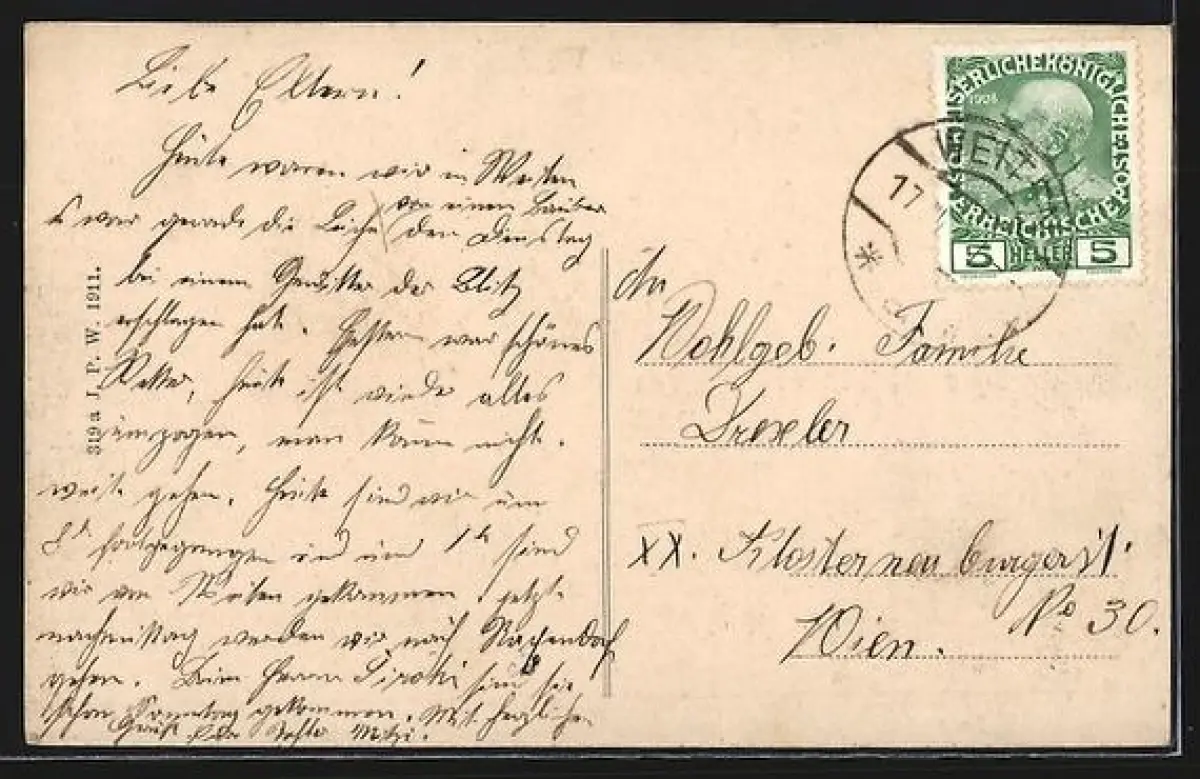 Liebe Eltern!
Heute waren wir in
es war gerade die Leiche von einen
den Dienstag
bei einem Gewitter der Blitz
erschlagen hat. Gestern war schönes
Wetter, heute ist wieder alles
umzogen, man kann nicht
weit gehen. Heute sind wir um
8h fortgegangen und um 1h sind
wir von gekommen jetzt
nachmittag werden wir nach
gehen. Beim Herrn Siroki sind sie
schon Sonntag gekommen. Mit herzlichen
Gruß Mitzi.
319a J. P. W. 1911.
KAISERLICHE KÖNIGLICHE ÖSTERREICHISCHE
1908
5 HELLER 5
17
An
Wohlgeb. Familie
Drexler
XX. Klosterneuburgerst
No 30.
Wien.